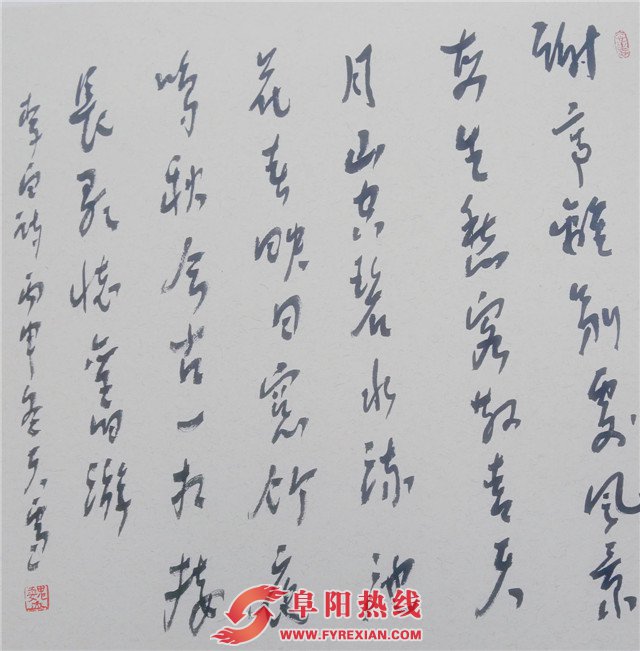 謝亭離別處風景
每生愁客散青天
月山空碧水流池
花春映日窗竹夜
鳴秋今古一相接
長歌懷舊游
李白詩丙申冬天
阜阳热线
WWW.FYREXIAN.COM